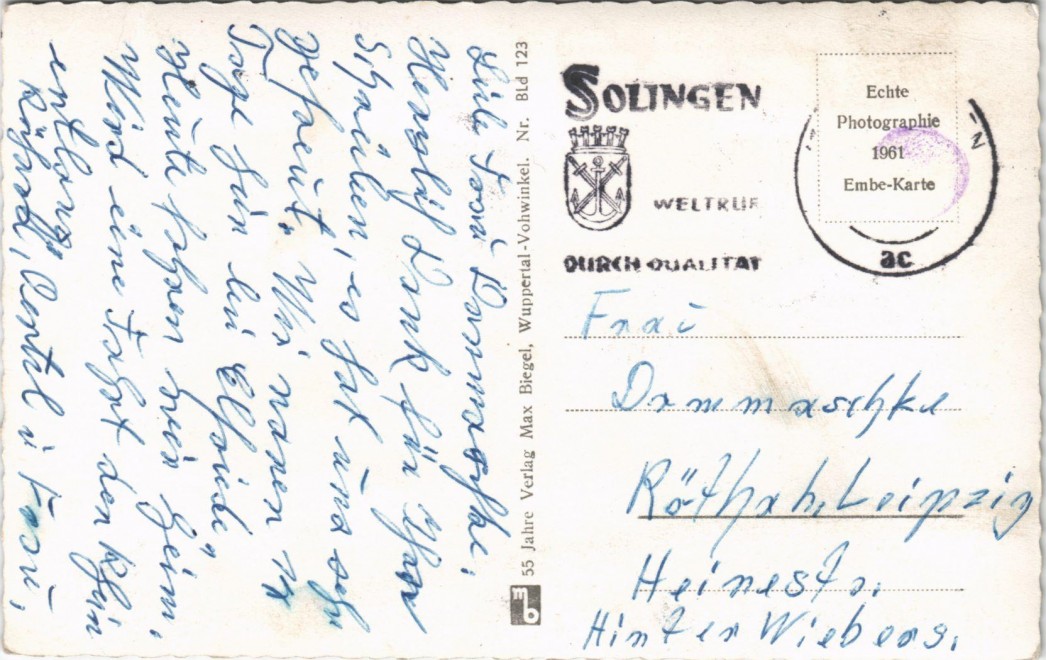 Liebe Frau Drommaschke.
Herzlich Dank für Ihr
Schreiben, es hat uns sehr
gefreut. Wir waren 14
Tage für bei Elfriede,
Heute fahren wir heim.
Wird eine Fahrt den Rhein
entlang.
Rößat, Bertel u Frau,
55 Jahre Verlag Max Biegel, Wuppertal-Vohwinkel. Nr. BLd 123
mb
SOLINGEN
WELTRUF
DURCH QUALITAT
Echte
Photographie
1961
Embe-Karte
N
ac
Frau
Drommaschke
Rötha b, Leipzig
Heinestr.
Hinter Wiebers.